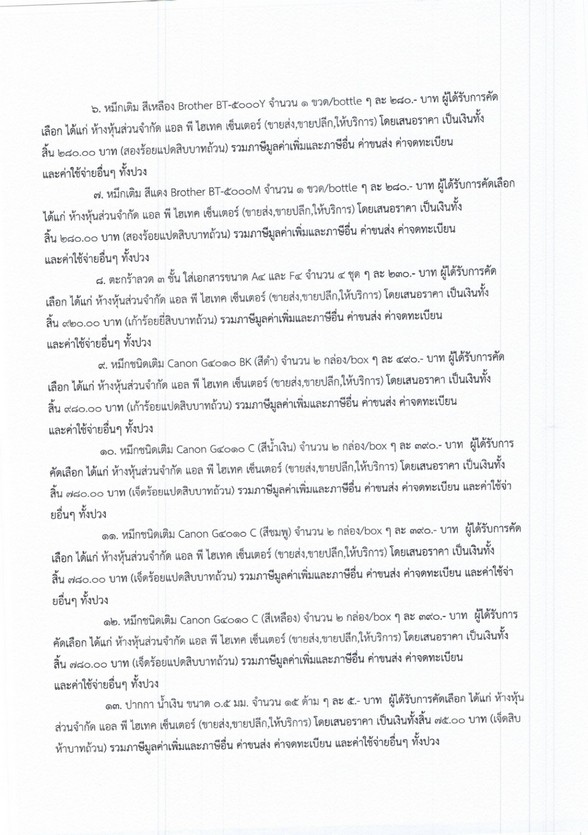 ๖. หมึกเติม สีเหลือง Brother BT-๕๐๐๐Y จำนวน ๑ ขวด/bottle ๆ ละ ๒๘๐.- บาท ผู้ได้รับการคัด
เลือก ได้แก่ ห้างหุ้นส่วนจำกัด แอล พี ไฮเทค เซ็นเตอร์ (ขายส่ง,ขายปลีก,ให้บริการ) โดยเสนอราคา เป็นเงินทั้ง
สิ้น ๒๘๐.๐๐ บาท (สองร้อยแปดสิบบาทถ้วน) รวมภาษีมูลค่าเพิ่มและภาษีอื่น ค่าขนส่ง ค่าจดทะเบียน
และค่าใช้จ่ายอื่นๆ ทั้งปวง
๗. หมึกเติม สีแดง Brother BT-๕๐๐๐M จำนวน ๑ ขวด/bottle ๆ ละ ๒๘๐.- บาท ผู้ได้รับการคัดเลือก
ได้แก่ ห้างหุ้นส่วนจำกัด แอล พี ไฮเทค เซ็นเตอร์ (ขายส่ง,ขายปลีก,ให้บริการ) โดยเสนอราคา เป็นเงินทั้ง
สิ้น ๒๘๐.๐๐ บาท (สองร้อยแปดสิบบาทถ้วน) รวมภาษีมูลค่าเพิ่มและภาษีอื่น ค่าขนส่ง ค่าจดทะเบียน
และค่าใช้จ่ายอื่นๆ ทั้งปวง
๘. ตะกร้าลวด ๓ ชั้น ใส่เอกสารขนาด A๔ และ F๔ จำนวน ๔ ชุด ๆ ละ ๒๓๐.- บาท ผู้ได้รับการคัด
เลือก ได้แก่ ห้างหุ้นส่วนจำกัด แอล พี ไฮเทค เซ็นเตอร์ (ขายส่ง,ขายปลีก,ให้บริการ) โดยเสนอราคา เป็นเงินทั้ง
สิ้น ๙๒๐.๐๐ บาท (เก้าร้อยยี่สิบบาทถ้วน) รวมภาษีมูลค่าเพิ่มและภาษีอื่น ค่าขนส่ง ค่าจดทะเบียน
และค่าใช้จ่ายอื่นๆ ทั้งปวง
๙. หมึกชนิดเติม Canon G๔๐๑๐ BK (สีดำ) จำนวน ๒ กล่อง/box ๆ ละ ๔๙๐.- บาท ผู้ได้รับการคัด
เลือก ได้แก่ ห้างหุ้นส่วนจำกัด แอล พี ไฮเทค เซ็นเตอร์ (ขายส่ง,ขายปลีก,ให้บริการ) โดยเสนอราคา เป็นเงินทั้ง
สิ้น ๙๘๐.๐๐ บาท (เก้าร้อยแปดสิบบาทถ้วน) รวมภาษีมูลค่าเพิ่มและภาษีอื่น ค่าขนส่ง ค่าจดทะเบียน
และค่าใช้จ่ายอื่นๆ ทั้งปวง
๑๐. หมึกชนิดเติม Canon G๔๐๑๐ C (สีน้ำเงิน) จำนวน ๒ กล่อง/box ๆ ละ ๓๙๐.- บาท ผู้ได้รับการ
คัดเลือก ได้แก่ ห้างหุ้นส่วนจำกัด แอล พี ไฮเทค เซ็นเตอร์ (ขายส่ง,ขายปลีก,ให้บริการ) โดยเสนอราคา เป็นเงินทั้ง
สิ้น ๗๘๐.๐๐ บาท (เจ็ดร้อยแปดสิบบาทถ้วน) รวมภาษีมูลค่าเพิ่มและภาษีอื่น ค่าขนส่ง ค่าจดทะเบียน และค่าใช้จ่า
ยอื่นๆ ทั้งปวง
๑๑. หมึกชนิดเติม Canon G๔๐๑๐ C (สีชมพู) จำนวน ๒ กล่อง/box ๆ ละ ๓๙๐.- บาท ผู้ได้รับการคัด
เลือก ได้แก่ ห้างหุ้นส่วนจำกัด แอล พี ไฮเทค เซ็นเตอร์ (ขายส่ง,ขายปลีก,ให้บริการ) โดยเสนอราคา เป็นเงินทั้ง
สิ้น ๗๘๐.๐๐ บาท (เจ็ดร้อยแปดสิบบาทถ้วน) รวมภาษีมูลค่าเพิ่มและภาษีอื่น ค่าขนส่ง ค่าจดทะเบียน และค่าใช้จ่า
ยอื่นๆ ทั้งปวง
๑๒. หมึกชนิดเติม Canon G๔๐๑๐ C (สีเหลือง) จำนวน ๒ กล่อง/box ๆ ละ ๓๙๐.- บาท ผู้ได้รับการ
คัดเลือก ได้แก่ ห้างหุ้นส่วนจำกัด แอล พี ไฮเทค เซ็นเตอร์ (ขายส่ง,ขายปลีก,ให้บริการ) โดยเสนอราคา เป็นเงินทั้ง
สิ้น ๗๘๐.๐๐ บาท (เจ็ดร้อยแปดสิบบาทถ้วน) รวมภาษีมูลค่าเพิ่มและภาษีอื่น ค่าขนส่ง ค่าจดทะเบียน
และค่าใช้จ่ายอื่นๆ ทั้งปวง
๑๓. ปากกา น้ำเงิน ขนาด ๐.๕ มม. จำนวน ๑๕ ด้าม ๆ ละ ๕.- บาท ผู้ได้รับการคัดเลือก ได้แก่ ห้างหุ้น
ส่วนจำกัด แอล พี ไฮเทค เซ็นเตอร์ (ขายส่ง,ขายปลีก,ให้บริการ) โดยเสนอราคา เป็นเงินทั้งสิ้น ๗๕.๐๐ บาท (เจ็ดสิบ
ห้าบาทถ้วน) รวมภาษีมูลค่าเพิ่มและภาษีอื่น ค่าขนส่ง ค่าจดทะเบียน และค่าใช้จ่ายอื่นๆ ทั้งปวง